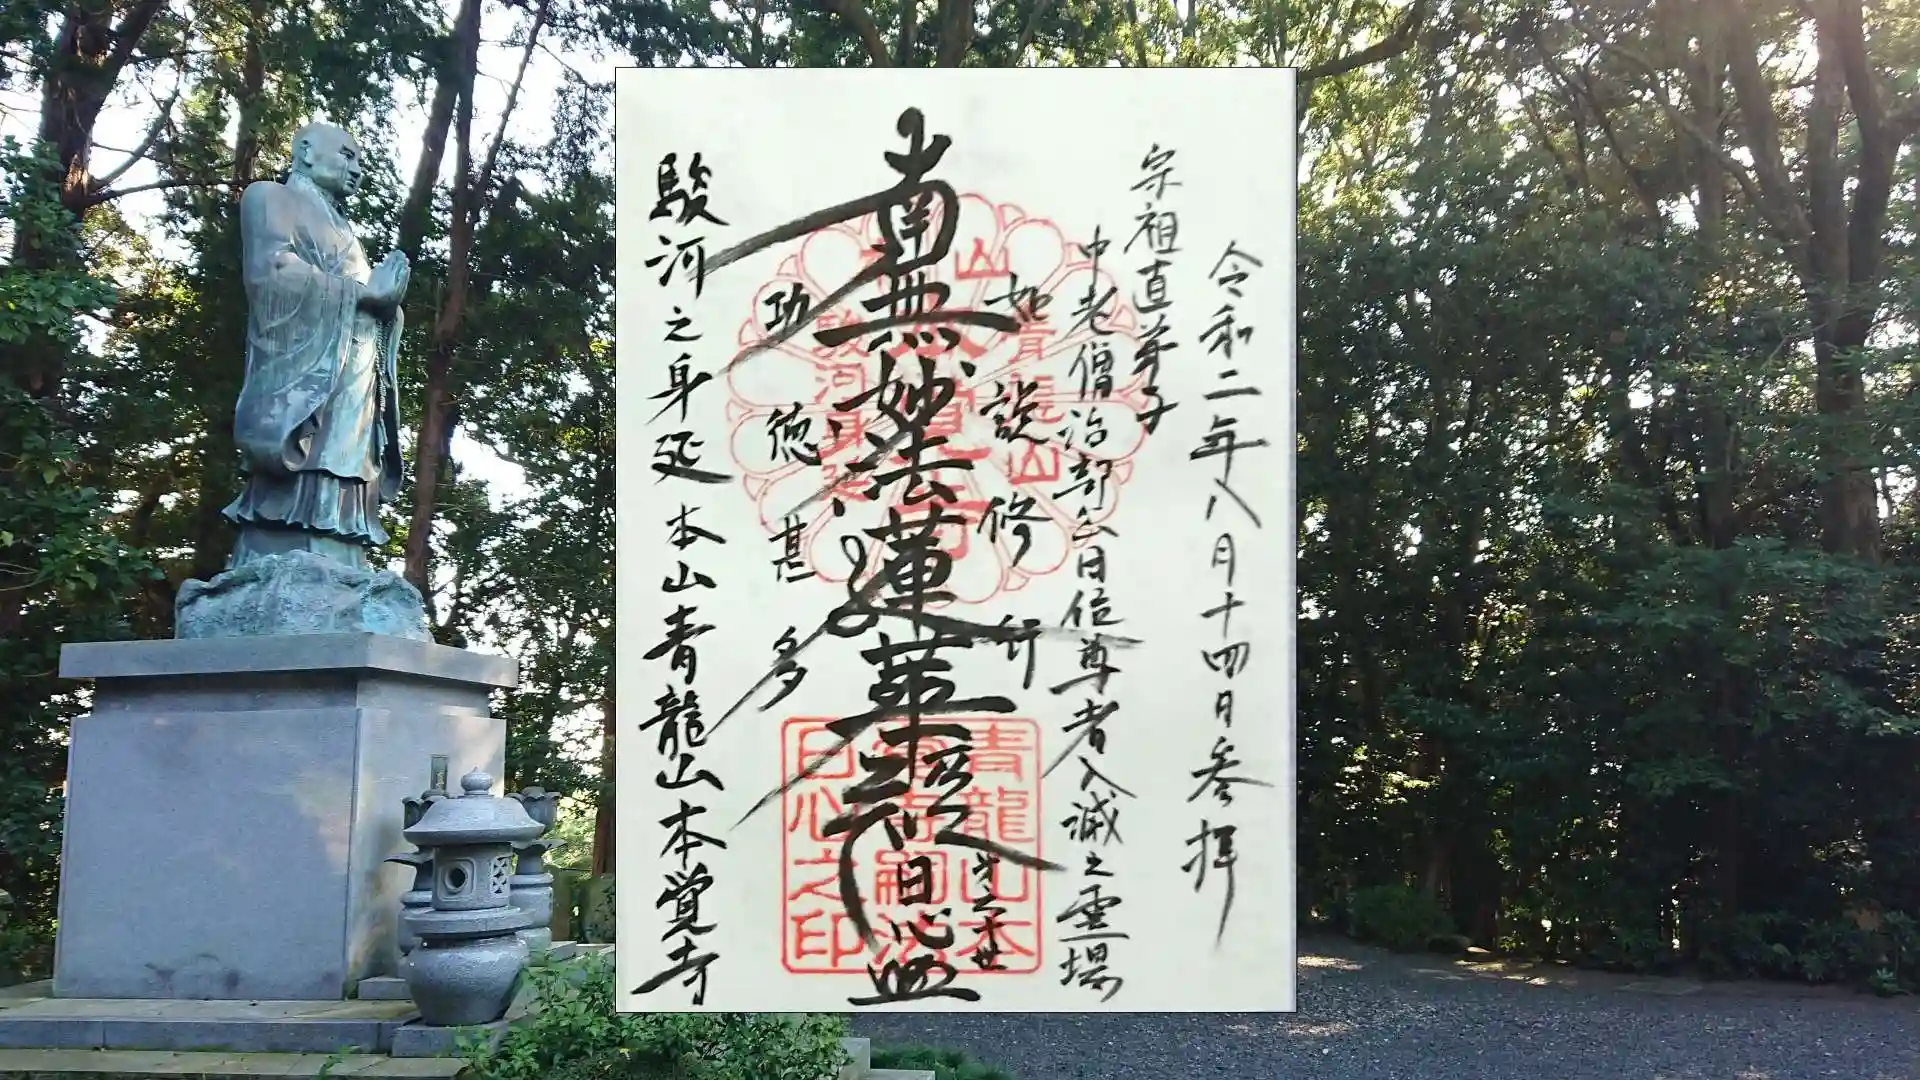 令和二年八月十四日参拝
宗祖直弟子
中老僧治部公日位尊者入滅之霊場
如説修行
南無妙法蓮華経
日心
功徳甚多
駿河之身延本山青龍山本覚寺
青龍山本
覚寺嗣法
日心之印